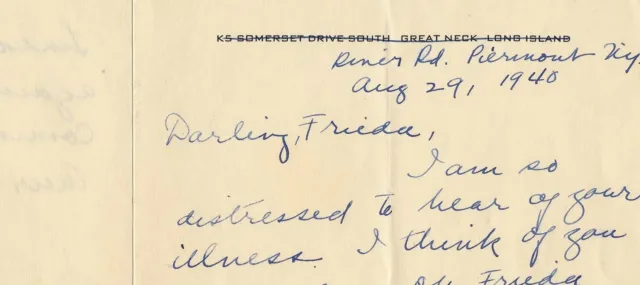 K5 SOMERSET DRIVE SOUTH GREAT NECK LONG ISLAND
Rd. Piermont N.y.
Aug 29, 1940
Darling, Frieda,
I am so
distressed to hear of your
illness. I think of you
Frieda